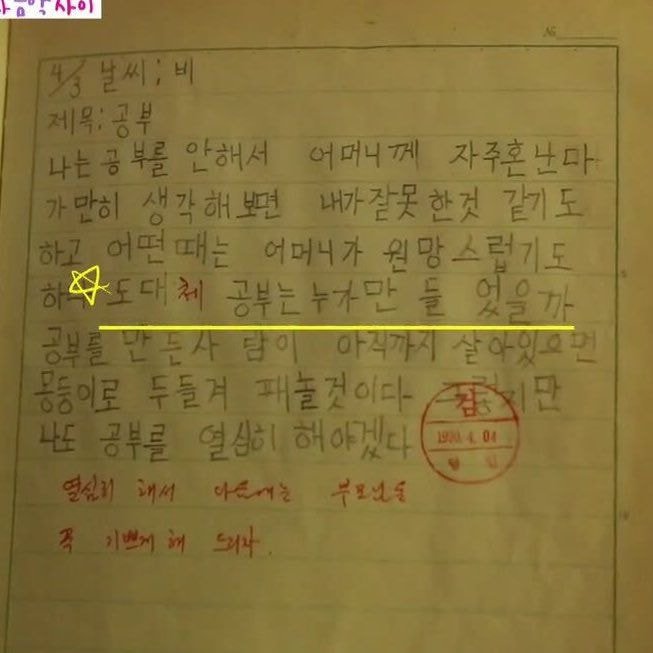 사이
№
4/3 날씨; 비
제목: 공부
나는 공부를 안해서 어머니께 자주혼난다
가만히 생각해보면 내가잘못한것 같기도
하고 어떤때는 어머니가 원망스럽기도
도대체 공부는누가만 들 었을까
공부를 만 든사 람이 아직까지 살아있으면
몽둥이로 두들겨 패놀것이다 그렇지만
나도 공부를 열심히 해야겠다
검
4. 04
열심히 해서 부모님을
꼭 기쁘게 해 드리자.